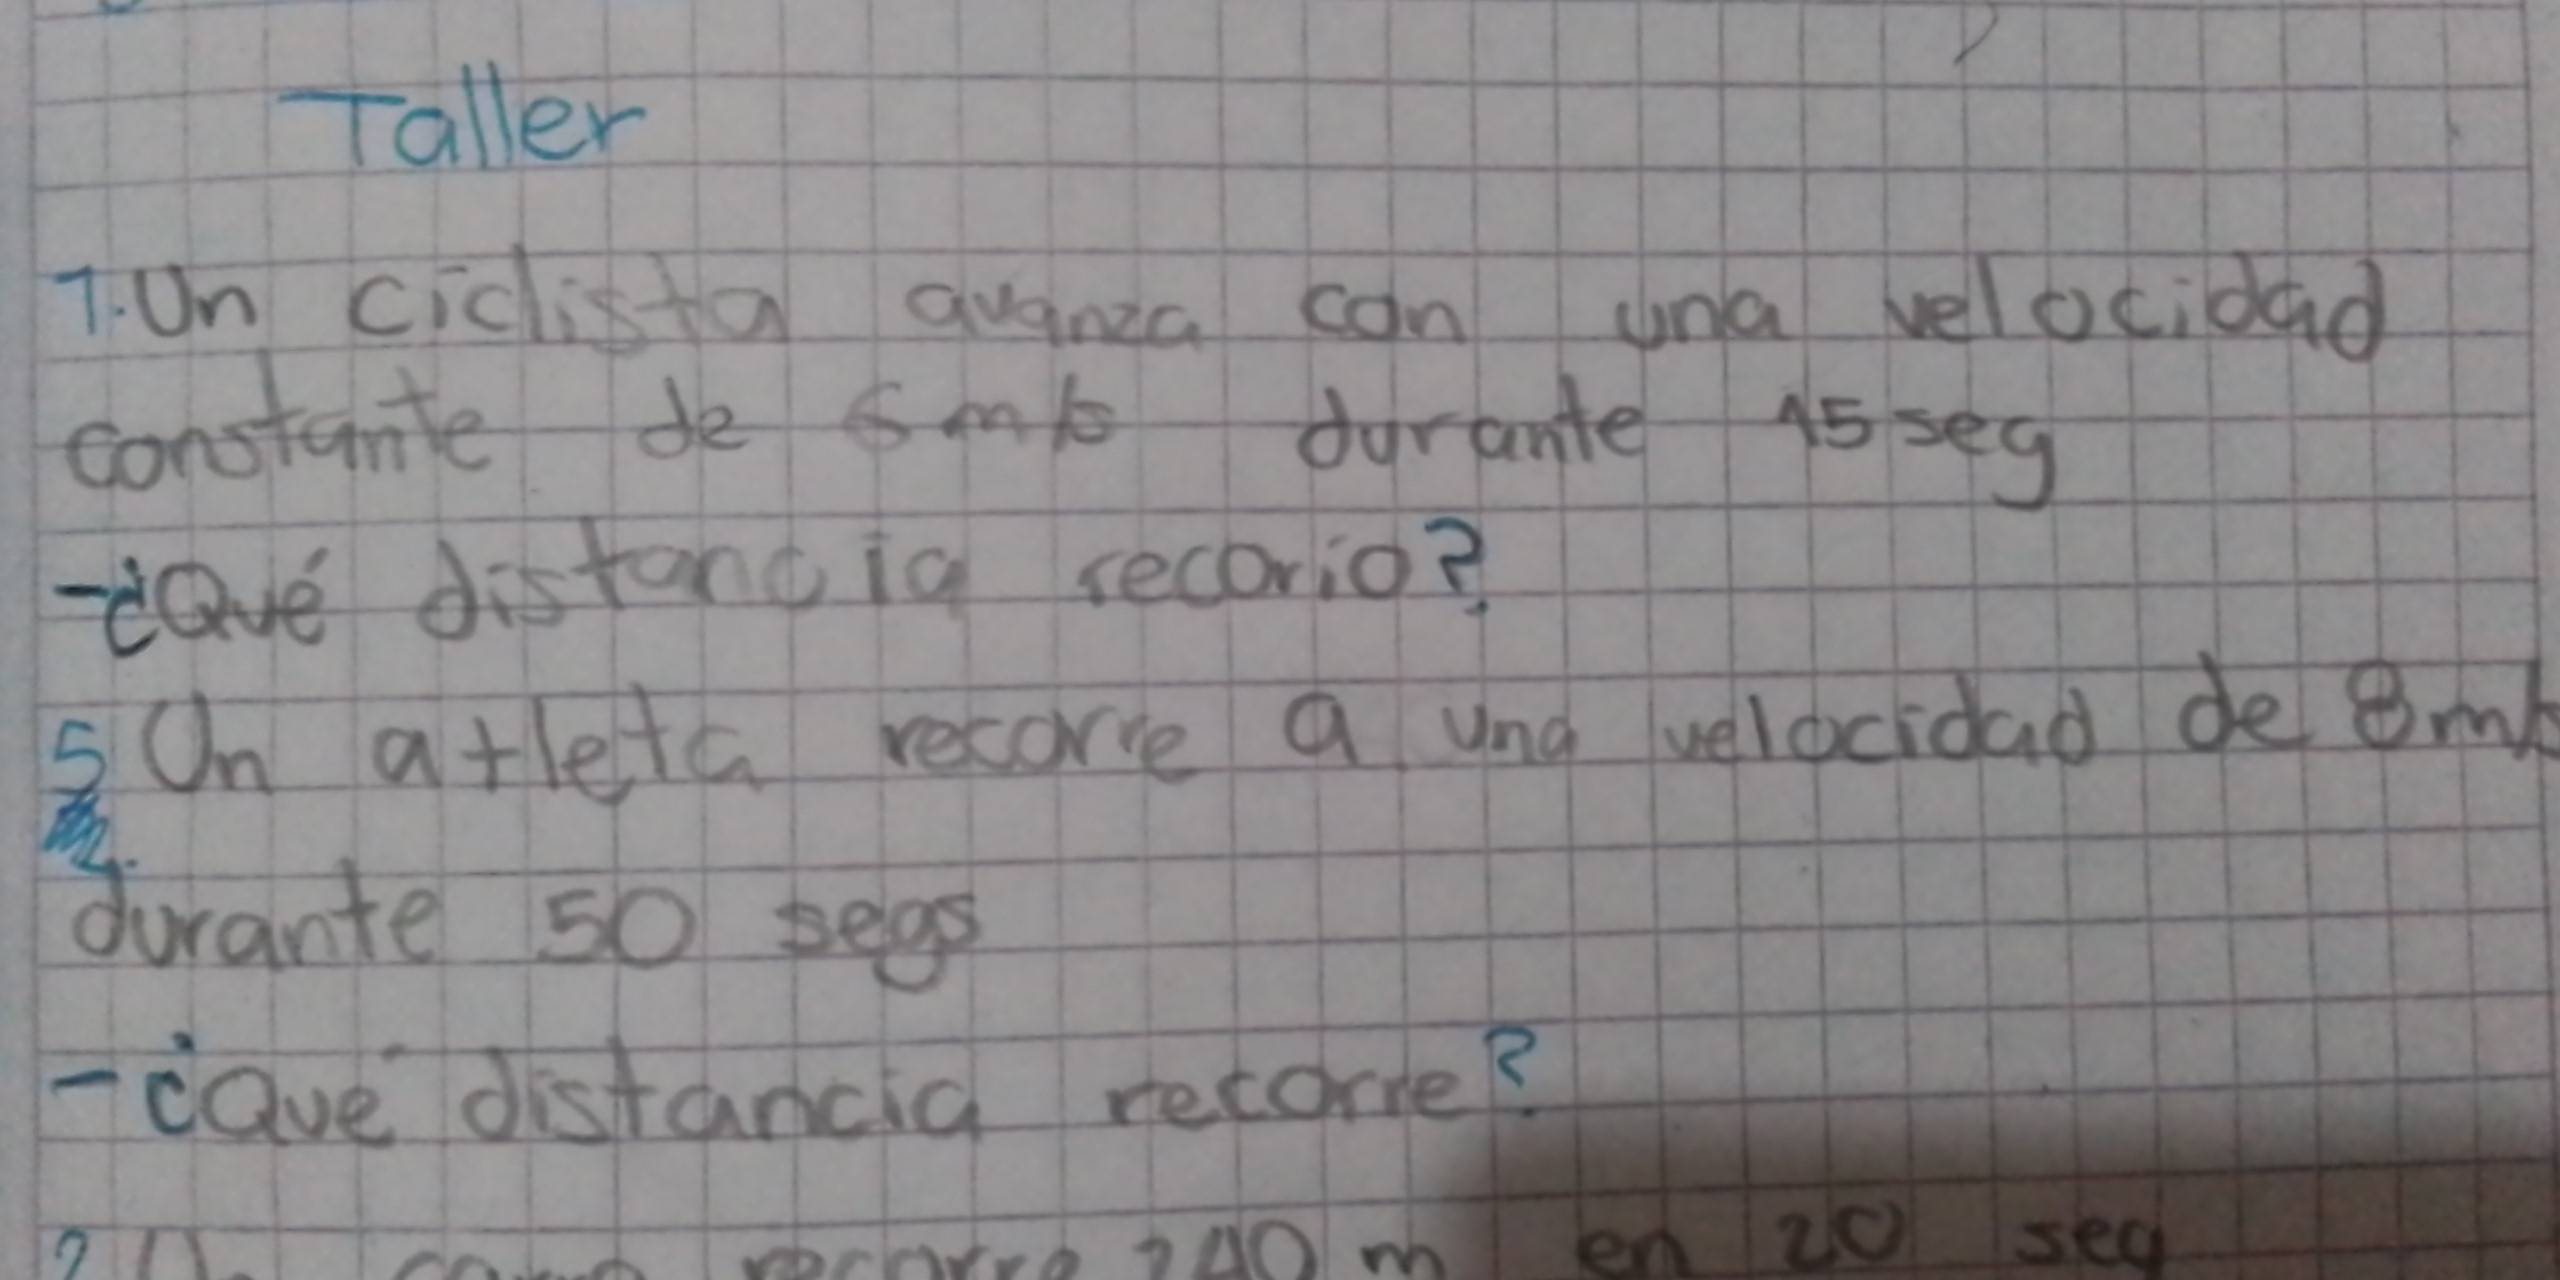 Taller
1. Un ciclista avanza con una velocidad
constante de 6 m/s durante 15 seg
-¿Qué distancia recorio?
5 Un atleta recorre a una velocidad de 8 m/s
durante 50 segs
-¿Qué distancia recorre?
2 Un carro recorre 240 m en 20 seg